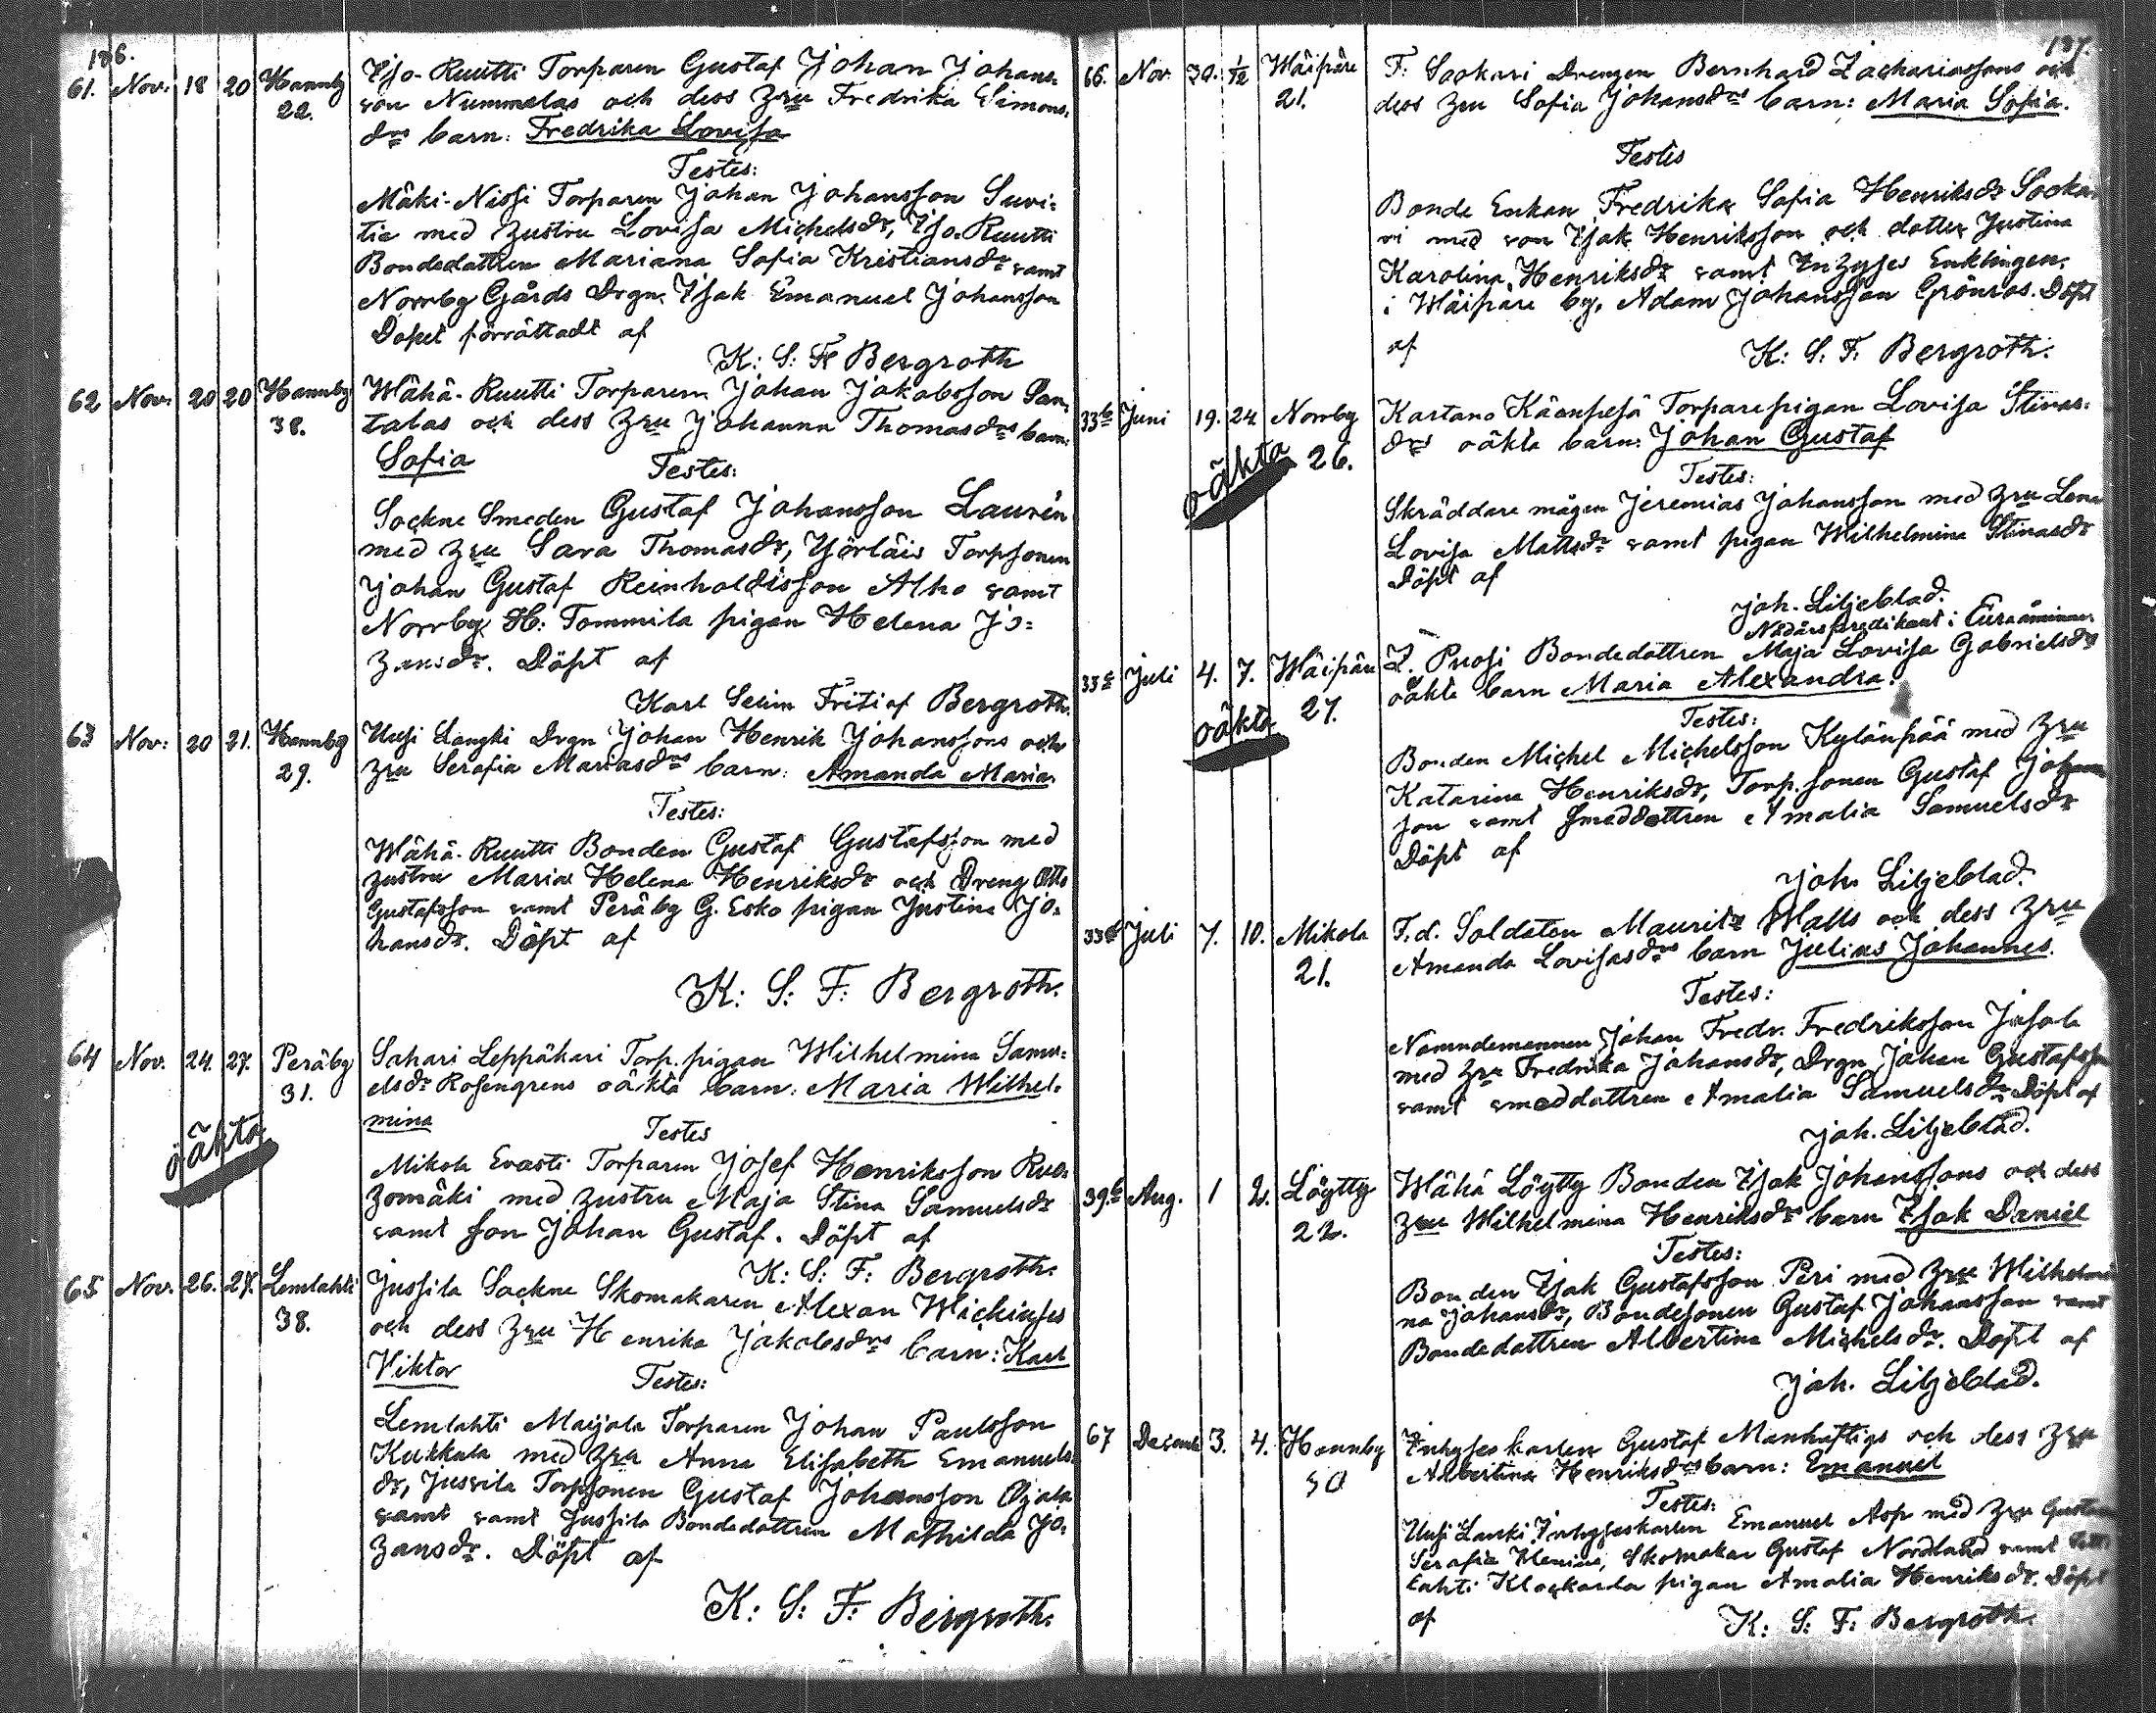 186.
61. Nov. 18 20 Hannby 22. Iso-Ruutti Torparen Gustaf Johan Johans-
son Nummelas och dess Hru Fredrika Simons-
drs barn: Fredrika Lovisa
Testes:
Mäki-Nissi Torparen Johan Johansson Suvi-
tie med hustru Lovisa Michelsdr, Iso-Ruutti
Bondedottren Mariana Sofia Kristiansdr samt
Norrby Gårds Drgn. Isak Emanuel Johansson
Döpet förrättadt af
K: S: F: Bergroth
62 Nov. 20 20 Hannby 38. Wähä-Ruutti Torparen Johan Jakobsson San-
talas och dess Hru Johanna Thomasdrs barn:
Sofia
Testes:
Sockne Smeden Gustaf Johansson Laurén
med Hru Sara Thomasdr, Yörläis Torpsonen
Johan Gustaf Reinholdsson Alho samt
Norrby H: Tommila pigan Helena Jo-
hansdr. Döpt af
Karl Selim Fritiof Bergroth.
63 Nov: 20 21. Hannby 29. Uusi Langki Drgn Johan Henrik Johanssons och
Hru Serafia Mariasdrs barn: Amanda Maria
Testes:
Wähä-Ruutti Bonden Gustaf Gustafsson med
hustru Maria Helena Henriksdr och Dreng Otto
Gustafsson samt Peräby G. Esko pigan Justina Jo-
hansdr. Döpt af
K: S: F: Bergroth.
64 Nov. 24. 27. Peräby 31. Sahari Leppäkari Torp. pigan Wilhelmina Samu-
elsdr Rosengrens oäkta barn: Maria Wilhel-
mina
oäkta
Testes
Mikola Evasti Torparen Josef Henriksson Ruo-
homäki med hustru Maja Stina Samuelsdr
samt son Johan Gustaf. Döpt af
K: S: F: Bergroth.
65 Nov. 26. 27. Lemlahti 38. Jussila Sockne Skomakaren Alexan Wichinses
och dess Hru Henrika Jakobsdrs barn: Karl
Viktor
Testes:
Lemlahti Maijala Torparen Johan Paulsson
Kukkula med Hru Anna Elisabeth Emanuels-
dr, Jussila Torpsonen Gustaf Johansson Ojala
samt samt Jussila Bondedottren Mathilda Jo-
hansdr. Döpt af
K: S: F: Bergroth.
187.
66. Nov. 30. 1/12 Wäipäre 21. F. Sockari Drengen Bernhard Zachariassons och
dess Hru Sofia Johansdrs barn: Maria Sofia.
Testes
Bonde Enkan Fredrika Sofia Henriksdr Socka-
ri med son Isak Henriksson och dotter Justina
Karolina Henriksdr samt Inhyses Enklingen
i Wäipäre by, Adam Johansson Grönros. Döpt
af
K: S: F: Bergroth.
33b Juni 19. 24 Norrby 26. Kartano Käenpesä Torparepigan Lovisa Stinas-
drs oäkta barn: Johan Gustaf
oäkta
Testes:
Skräddare mågen Jeremias Johansson med Hru Lena
Lovisa Mattsdr samt pigan Wilhelmina Stinasdr
Döpt af
Joh. Liljeblad.
Nådårspredikant i Euraåminne
33c Juli 4. 7. Wäipäre 27. L. Prossi Bondedottren Maja Lovisa Gabrielsdrs
oäkta barn Maria Alexandra.
oäkta
Testes:
Bonden Michel Michelsson Kylänpää med Hru
Katarina Henriksdr, Torp. sonen Gustaf Johans-
son samt smeddottren Amalia Samuelsdr
Döpt af
Joh. Liljeblad.
33d Juli 7. 10. Mikola 21. F.d. Soldaten Mauritz Walls och dess Hru
Amanda Lovisasdrs barn Julius Johannes.
Testes:
Nämndemannen Johan Fredr. Fredriksson Jusola
med Hru Fredrika Johansdr, Drgn Johan Gustafsson
samt smeddottren Amalia Samuelsdr. Döpt af
Joh. Liljeblad.
39b Aug. 1 2. Löytty 22. Wähä Löytty Bonden Isak Johanssons och dess
Hru Wilhelmina Henriksdrs barn Isak Daniel
Testes:
Bonden Isak Gustafsson Peri med Hru Wilhelmi-
na Johansdr, Bondesonen Gustaf Johansson samt
Bondedottren Albertina Michelsdr. Döpt af
Joh. Liljeblad.
67 Decemb. 3. 4. Hannby 50 Inhyses karlen Gustaf Manhaftigs och dess Hru
Albertina Henriksdrs barn: Emanuel
Testes:
Uusi Lanki Inhyseskarlen Emanuel Asp med Hru Gustava
Serafia Henina, Skomakar Gustaf Nordlund samt
Lahti Klockarla pigan Amalia Henriksdr. Döpt
af
K: S: F: Bergroth.